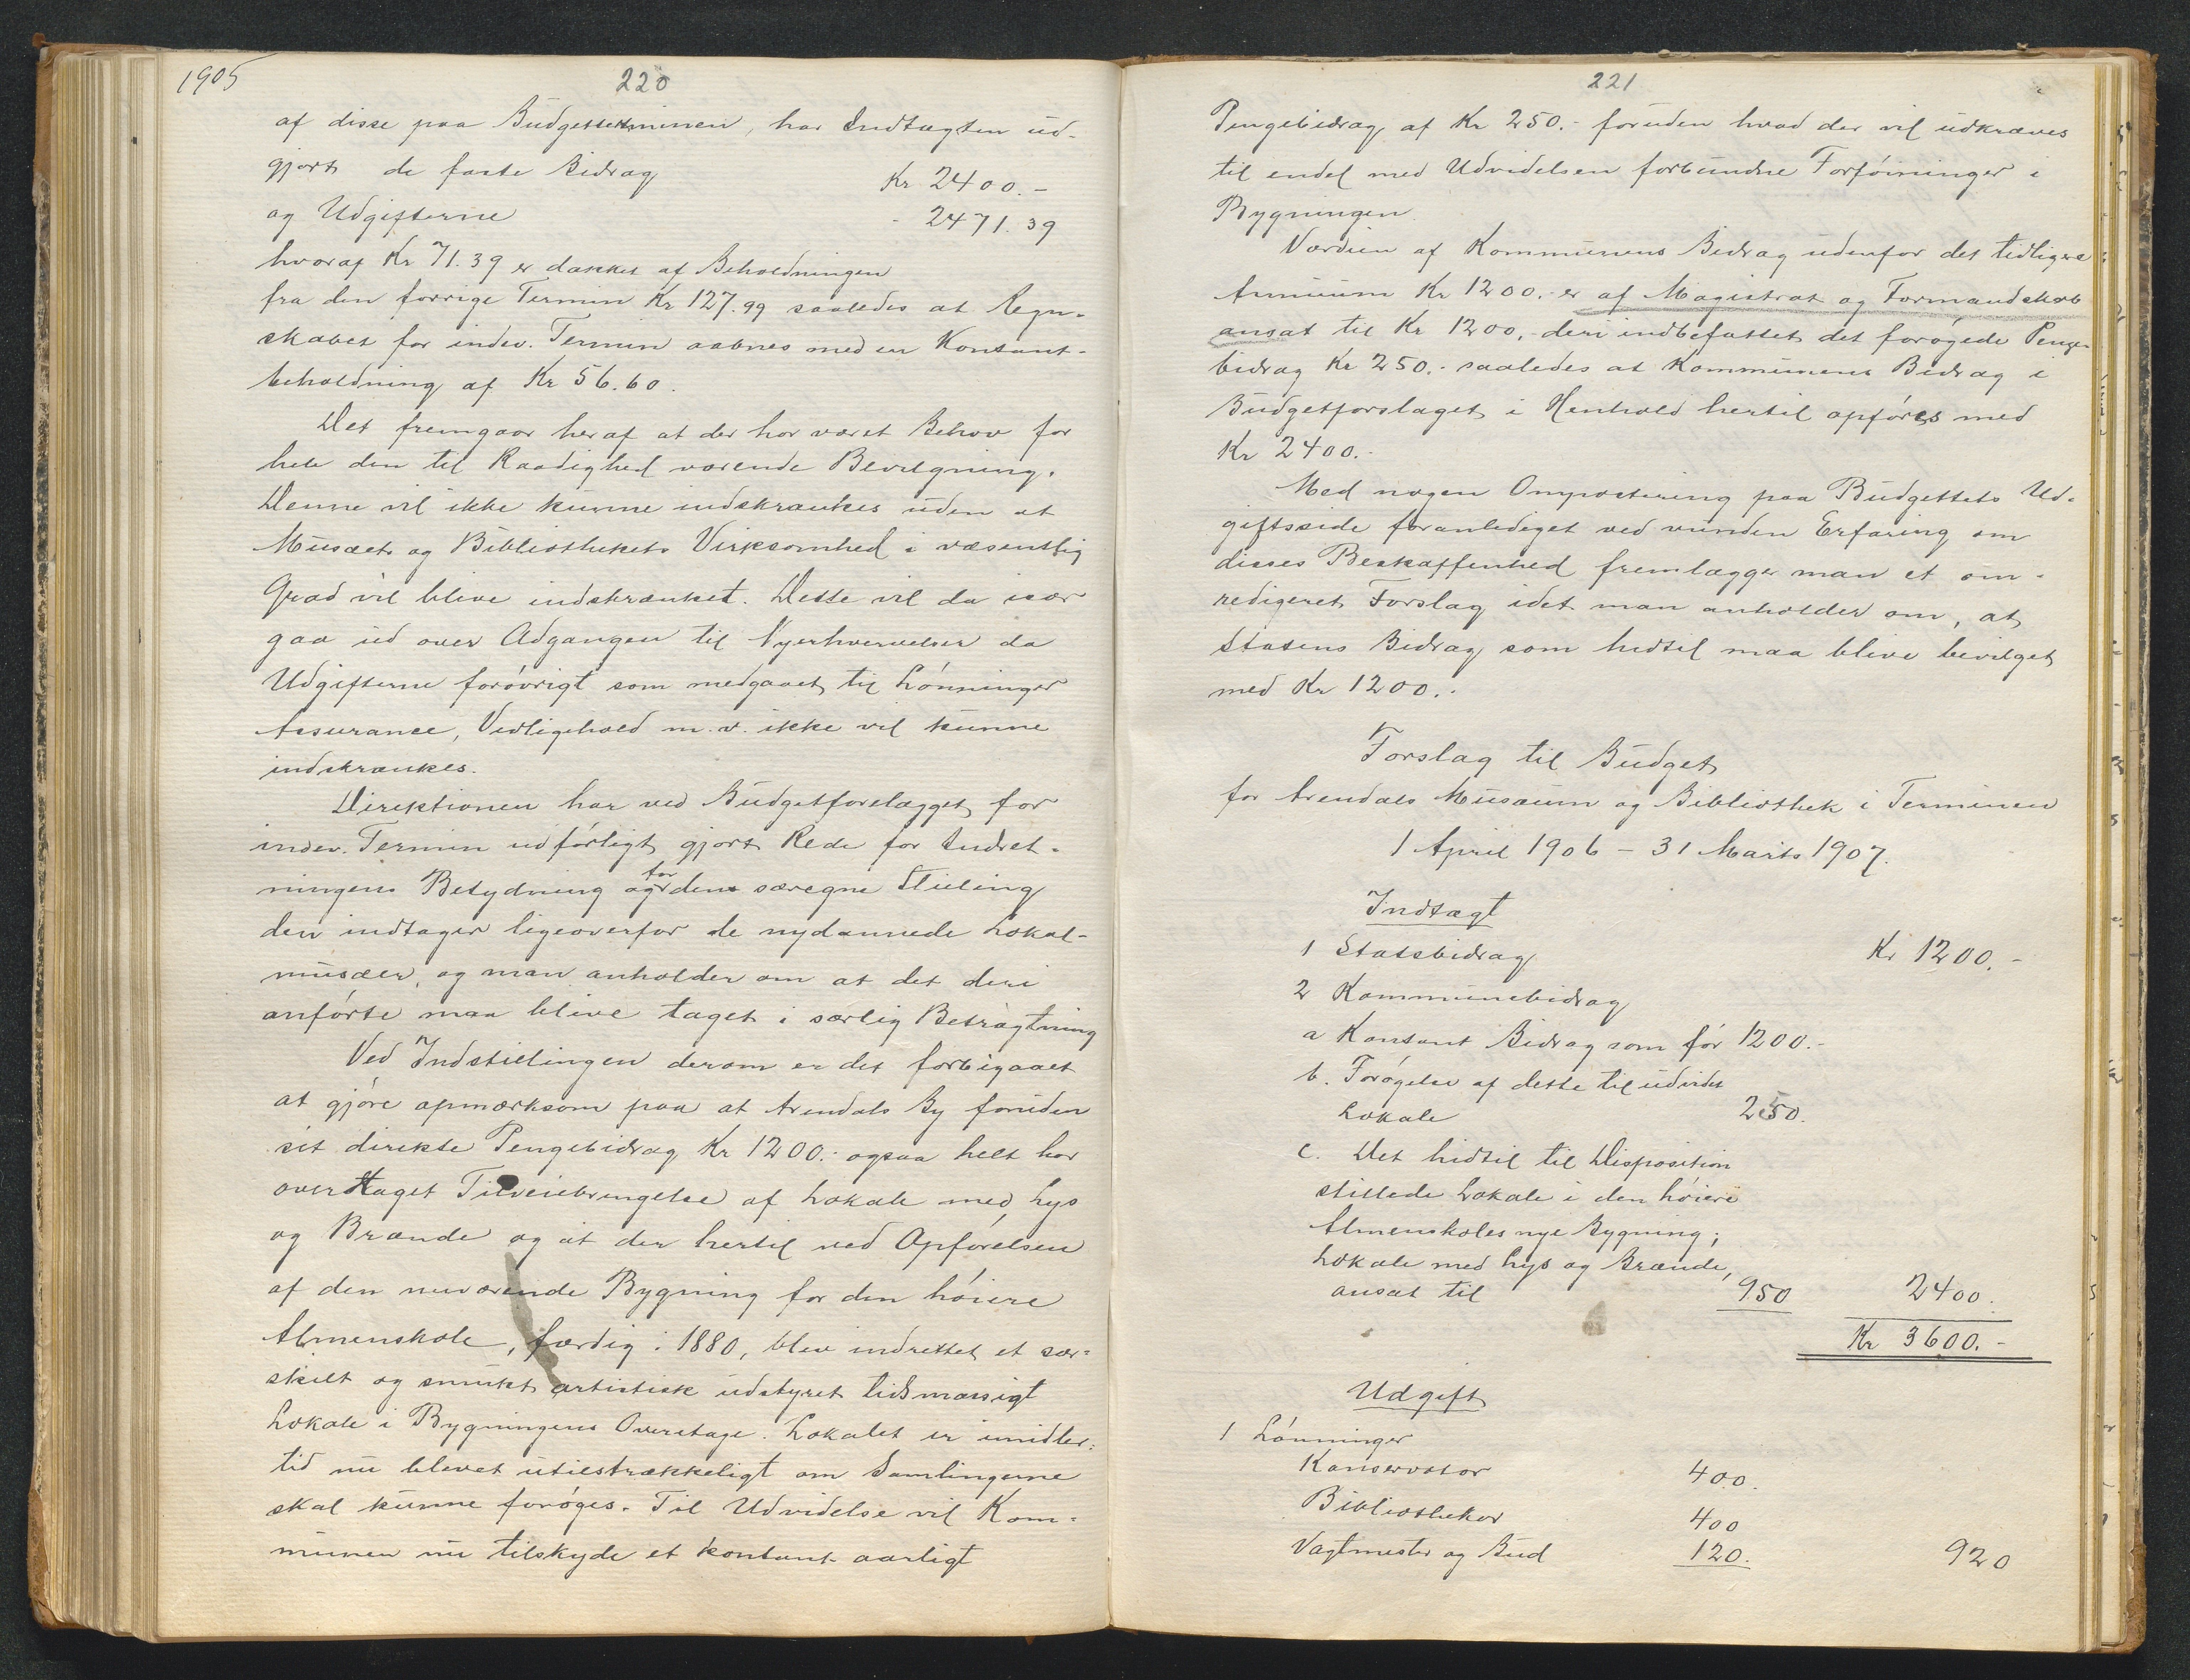 1905
220
af disse paa Budgetterminen, har Indtægten ud-
gjort de faste Bidrag Kr 2400.-
og Udgifterne - 2471.39
hvoraf Kr 71.39 er dækket af Beholdningen
fra den forrige Termin Kr 127.99 saaledes at Regn-
skabet for indev. Termin aabnes med en Kontant-
beholdning af Kr 56.60.
Det fremgaar heraf at der har været Behov for
hele den til Raadighed værende Bevilgning.
Denne vil ikke kunne indskrænkes uden at
Musæets og Bibliothekets Virksomhed i væsentlig
Grad vil blive indskrænket. Dette vil da især
gaa ud over Adgangen til Nyerhvervelser da
Udgifterne forøvrigt som medgaaet til Lønninger
Assurance, Vedligehold m.v. ikke vil kunne
indskrænkes.
Direktionen har ved Budgetforslagget for
indev. Termin udførligt gjort Rede for Indret-
ningens Betydning og for den særegne Stilling
den indtager ligeoverfor de nydannede Lokal-
musæer, og man anholder om at det deri
anførte maa blive taget i særlig Betragtning
Ved Indstillingen derom er det forbigaaet
at gjøre opmærksom paa at Arendals By foruden
sit direkte Pengebidrag Kr 1200.- ogsaa helt har
overtaget Tilveiebringelse af Lokale med Lys
og Brænde og at der hertil ved Opførelsen
af den nuværende Bygning for den høiere
Almenskole, færdig i 1880, blev indrettet et sær-
skilt og smukt artistisk udstyret tidsmæssigt
Lokale i Bygningens Overetage. Lokalet er imidler-
tid nu blevet utilstrækkeligt om Samlingerne
skal kunne forøges. Til Udvidelse vil Kom-
munen nu tilskyde et kontant aarligt
221
Pengebidrag af Kr 250.- foruden hvad der vil udkræves
til endel med Udvidelsen forbundne Forføininger i
Bygningen
Værdien af Kommunens Bidrag udenfor det tidligere
Annuum Kr 1200.- er af Magistrat og Formandskab
ansat til Kr 1200,- deri indbefattet det forøgede Penge-
bidrag Kr 250.- saaledes at Kommunens Bidrag i
Budgetforslaget i Henhold hertil opføres med
Kr 2400.-
Med nogen Ompostering paa Budgettets Ud-
giftsside foranlediget ved vunden Erfaring om
disses Beskaffenhed fremlægger man et om-
redigeret Forslag idet man anholder om, at
Statens Bidrag som hidtil maa blive bevilget
med Kr 1200.-
Forslag til Budget
for Arendals Musæum og Bibliothek i Terminen
1 April 1906 - 31 Marts 1907.
Indtægt
1 Statsbidrag Kr 1200.-
2 Kommunebidrag
a Kontant Bidrag som før 1200.-
b. Forøgelse af dette til udvidet
Lokale 250.
c. Det hidtil til Disposition
stillede Lokale i den høiere
Almenskoles nye Bygning;
Lokale med Lys og Brænde,
ansat til 950 2400.
Kr 3600.-
Udgift
1 Lønninger
Konservator 400.
Bibliothekar 400
Vagtmester og Bud 120. 920